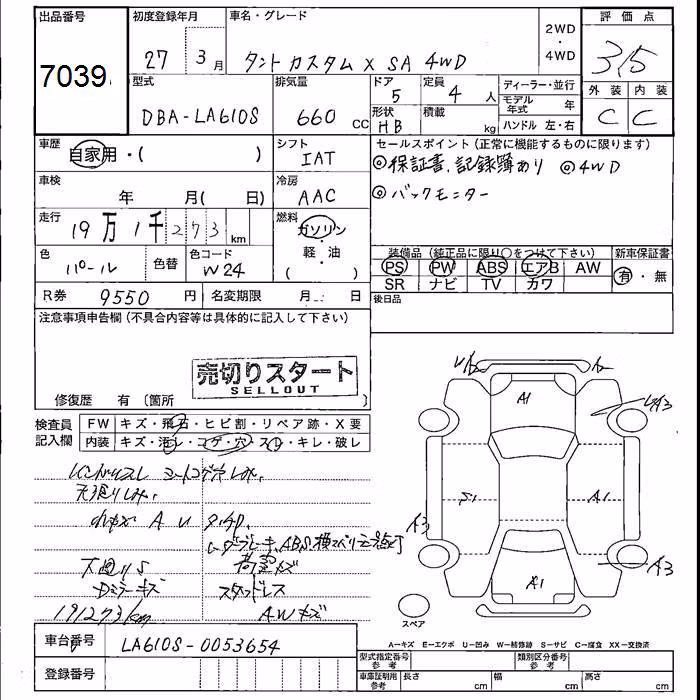 出品番号
7039
初度登録年月
27 3月
車名・グレード
タントカスタム X SA 4WD
2WD
・
4WD
評価点
3.5
外装 内装
C C
型式
DBA-LA610S
排気量
660 cc
ドア
5
定員
4 人
形状
HB
積載
kg
ディーラー・並行
モデル年式 年
ハンドル 左・右
車歴
自家用・( )
シフト
IAT
セールスポイント (正常に機能するものに限ります)
◎保証書、記録簿あり ◎4WD
◎バックモニター
車検
年 月( 日)
冷房
AAC
走行
19万1千273km
燃料
ガソリン
・
軽・油
( )
色
パール
色替
色コード
W24
装備品 (純正品に限り○をつけて下さい)
PS PW ABS エアB AW
SR ナビ TV カワ
新車保証書
有・無
R券 9550 円
名変期限 月 日
後日品
注意事項申告欄 (不具合内容等は具体的に記入して下さい)
売切りスタート
SELLOUT
修復歴 有 (箇所
検査員記入欄
FW キズ・飛石・ヒビ割・リペア跡・X要
内装 キズ・汚レ・コゲ・穴・スレ・キレ・破レ
シートコゲ穴
A U
下廻りS
Dミラーキズ
スタッドレス
191273km
AWキズ
A1
A3
S1
A1
A3
A3
A1
スペア
A=キズ E=エクボ U=凹み W=補修跡 S=サビ C=腐食 XX=交換済
車台番号
LA610S-0053654
登録番号
型式指定番号
参考
類別区分番号
参考
車庫証明用
参考
長さ cm
幅 cm
高さ cm